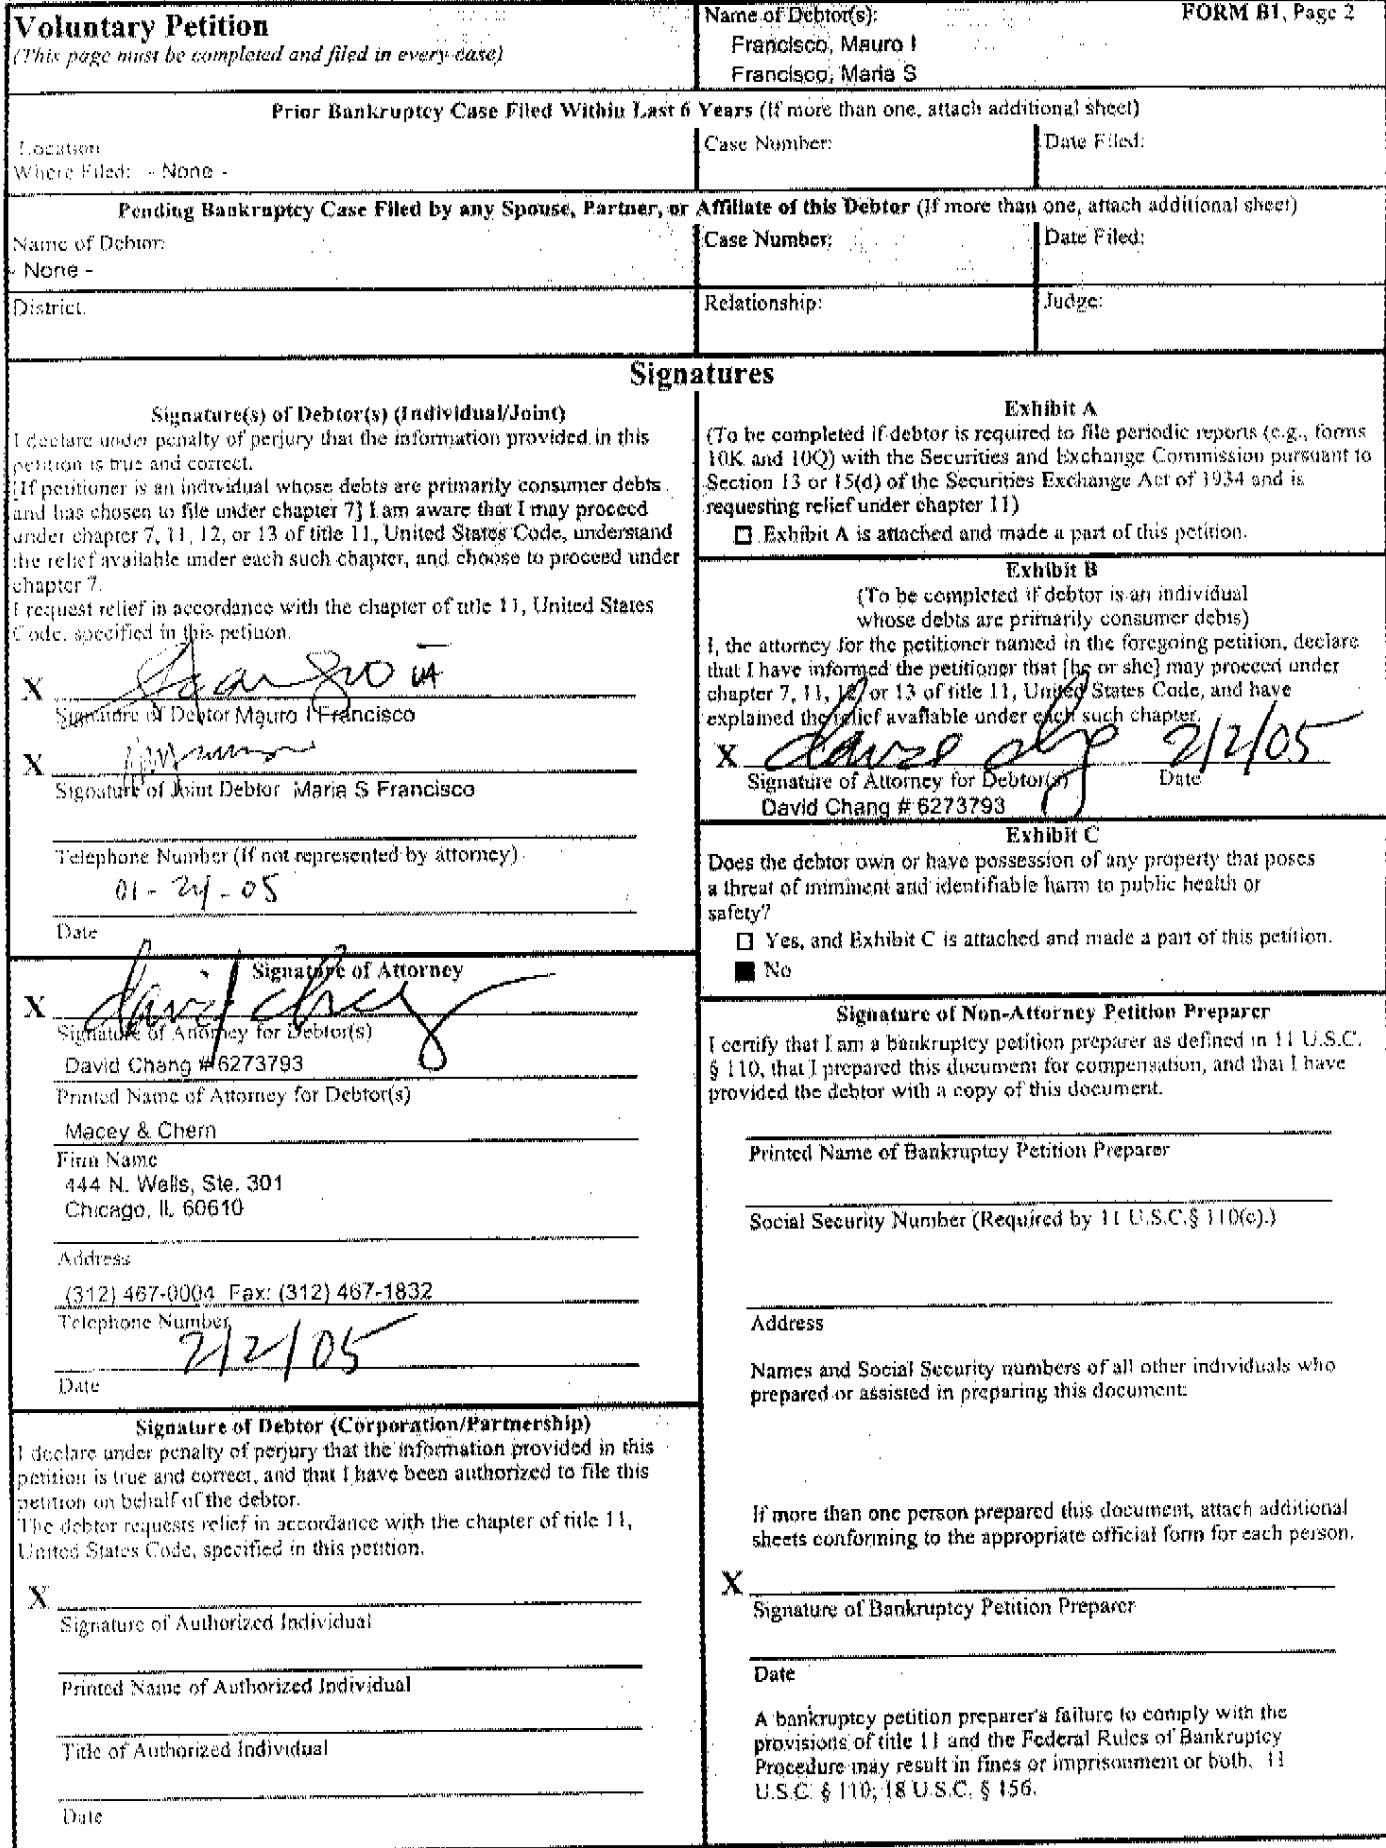 Voluntary Petition
(This page must be completed and filed in every case)
Name of Debtor(s):
FORM B1, Page 2
Francisco, Mauro I
Francisco, Maria S
Prior Bankruptcy Case Filed Within Last 6 Years (If more than one, attach additional sheet)
Location
Where Filed: - None -
Case Number:
Date Filed:
Pending Bankruptcy Case Filed by any Spouse, Partner, or Affiliate of this Debtor (If more than one, attach additional sheet)
Name of Debtor:
- None -
Case Number:
Date Filed:
District:
Relationship:
Judge:
Signatures
Signature(s) of Debtor(s) (Individual/Joint)
I declare under penalty of perjury that the information provided in this
petition is true and correct.
[If petitioner is an individual whose debts are primarily consumer debts
and has chosen to file under chapter 7] I am aware that I may proceed
under chapter 7, 11, 12, or 13 of title 11, United States Code, understand
the relief available under each such chapter, and choose to proceed under
chapter 7.
I request relief in accordance with the chapter of title 11, United States
Code, specified in this petition.
X
Signature of Debtor Mauro I Francisco
X
Signature of Joint Debtor Maria S Francisco
Telephone Number (If not represented by attorney)
01-24-05
Date
Signature of Attorney
X David Chang
Signature of Attorney for Debtor(s)
David Chang #6273793
Printed Name of Attorney for Debtor(s)
Macey & Chern
Firm Name
444 N. Wells, Ste. 301
Chicago, IL 60610
Address
(312) 467-0004 Fax: (312) 467-1832
Telephone Number
2/2/05
Date
Signature of Debtor (Corporation/Partnership)
I declare under penalty of perjury that the information provided in this
petition is true and correct, and that I have been authorized to file this
petition on behalf of the debtor.
The debtor requests relief in accordance with the chapter of title 11,
United States Code, specified in this petition.
X
Signature of Authorized Individual
Printed Name of Authorized Individual
Title of Authorized Individual
Date
Exhibit A
(To be completed if debtor is required to file periodic reports (e.g., forms
10K and 10Q) with the Securities and Exchange Commission pursuant to
Section 13 or 15(d) of the Securities Exchange Act of 1934 and is
requesting relief under chapter 11)
☐ Exhibit A is attached and made a part of this petition.
Exhibit B
(To be completed if debtor is an individual
whose debts are primarily consumer debts)
I, the attorney for the petitioner named in the foregoing petition, declare
that I have informed the petitioner that [he or she] may proceed under
chapter 7, 11, 12, or 13 of title 11, United States Code, and have
explained the relief available under each such chapter.
X David Chang 2/2/05
Signature of Attorney for Debtor(s) Date
David Chang # 6273793
Exhibit C
Does the debtor own or have possession of any property that poses
a threat of imminent and identifiable harm to public health or
safety?
☐ Yes, and Exhibit C is attached and made a part of this petition.
■ No
Signature of Non-Attorney Petition Preparer
I certify that I am a bankruptcy petition preparer as defined in 11 U.S.C.
§ 110, that I prepared this document for compensation, and that I have
provided the debtor with a copy of this document.
Printed Name of Bankruptcy Petition Preparer
Social Security Number (Required by 11 U.S.C.§ 110(c).)
Address
Names and Social Security numbers of all other individuals who
prepared or assisted in preparing this document:
If more than one person prepared this document, attach additional
sheets conforming to the appropriate official form for each person.
X
Signature of Bankruptcy Petition Preparer
Date
A bankruptcy petition preparer's failure to comply with the
provisions of title 11 and the Federal Rules of Bankruptcy
Procedure may result in fines or imprisonment or both. 11
U.S.C. § 110; 18 U.S.C. § 156.